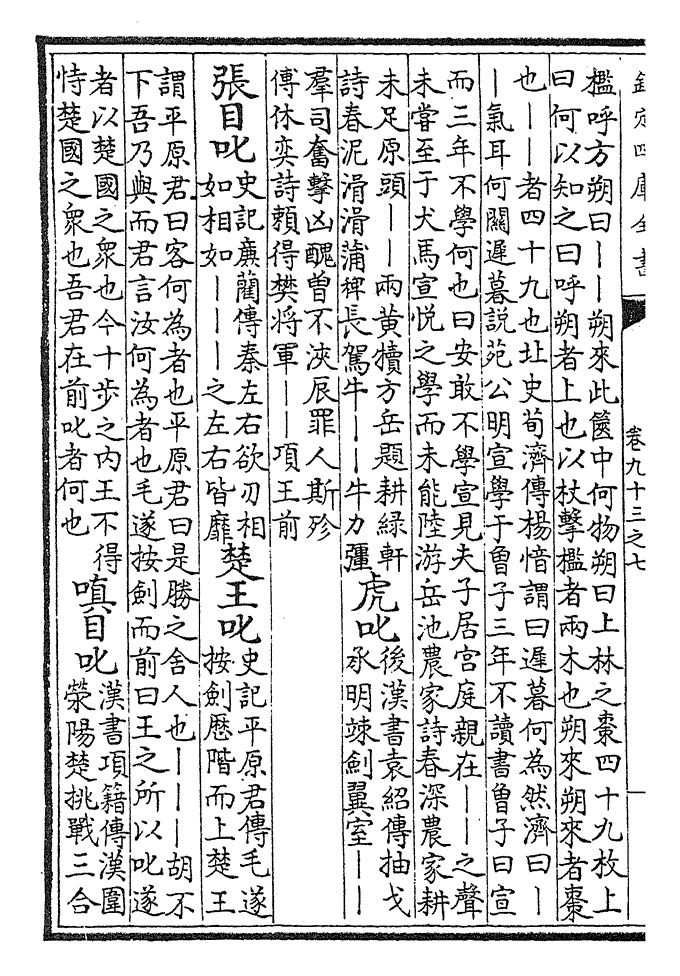 欽定四庫全書
卷九十三之七
檻呼方朔曰——朔來此篋中何物朔曰上林之棗四十九枚上
曰何以知之曰呼朔者上也以杖擊檻者兩木也朔來朔來者棗
也——者四十九也北史荀濟傳楊愔謂曰遲暮何為然濟曰—
—氣耳何關遲暮說苑公明宣學于曾子三年不讀書曾子曰宣
而三年不學何也曰安敢不學宣見夫子居宮庭親在——之聲
未嘗至于犬馬宣悅之學而未能陸游岳池農家詩春深農家耕
未足原頭——兩黃犢方岳題耕綠軒
詩春泥滑滑蒲稗長駕牛——牛力彊
虎叱
後漢書袁紹傳抽戈
承明竦劍翼室——
羣司奮擊凶醜曾不浹辰罪人斯殄
傅休奕詩賴得樊將軍——項王前
張目叱
史記廉藺傳秦左右欲刃相
如相如———之左右皆靡
楚王叱
史記平原君傳毛遂
按劍歷階而上楚王
謂平原君曰客何為者也平原君曰是勝之舍人也———胡不
下吾乃與而君言汝何為者也毛遂按劍而前曰王之所以叱遂
者以楚國之衆也今十步之内王不得
恃楚國之衆也吾君在前叱者何也
嗔目叱
漢書項籍傳漢圍
滎陽楚挑戰三合